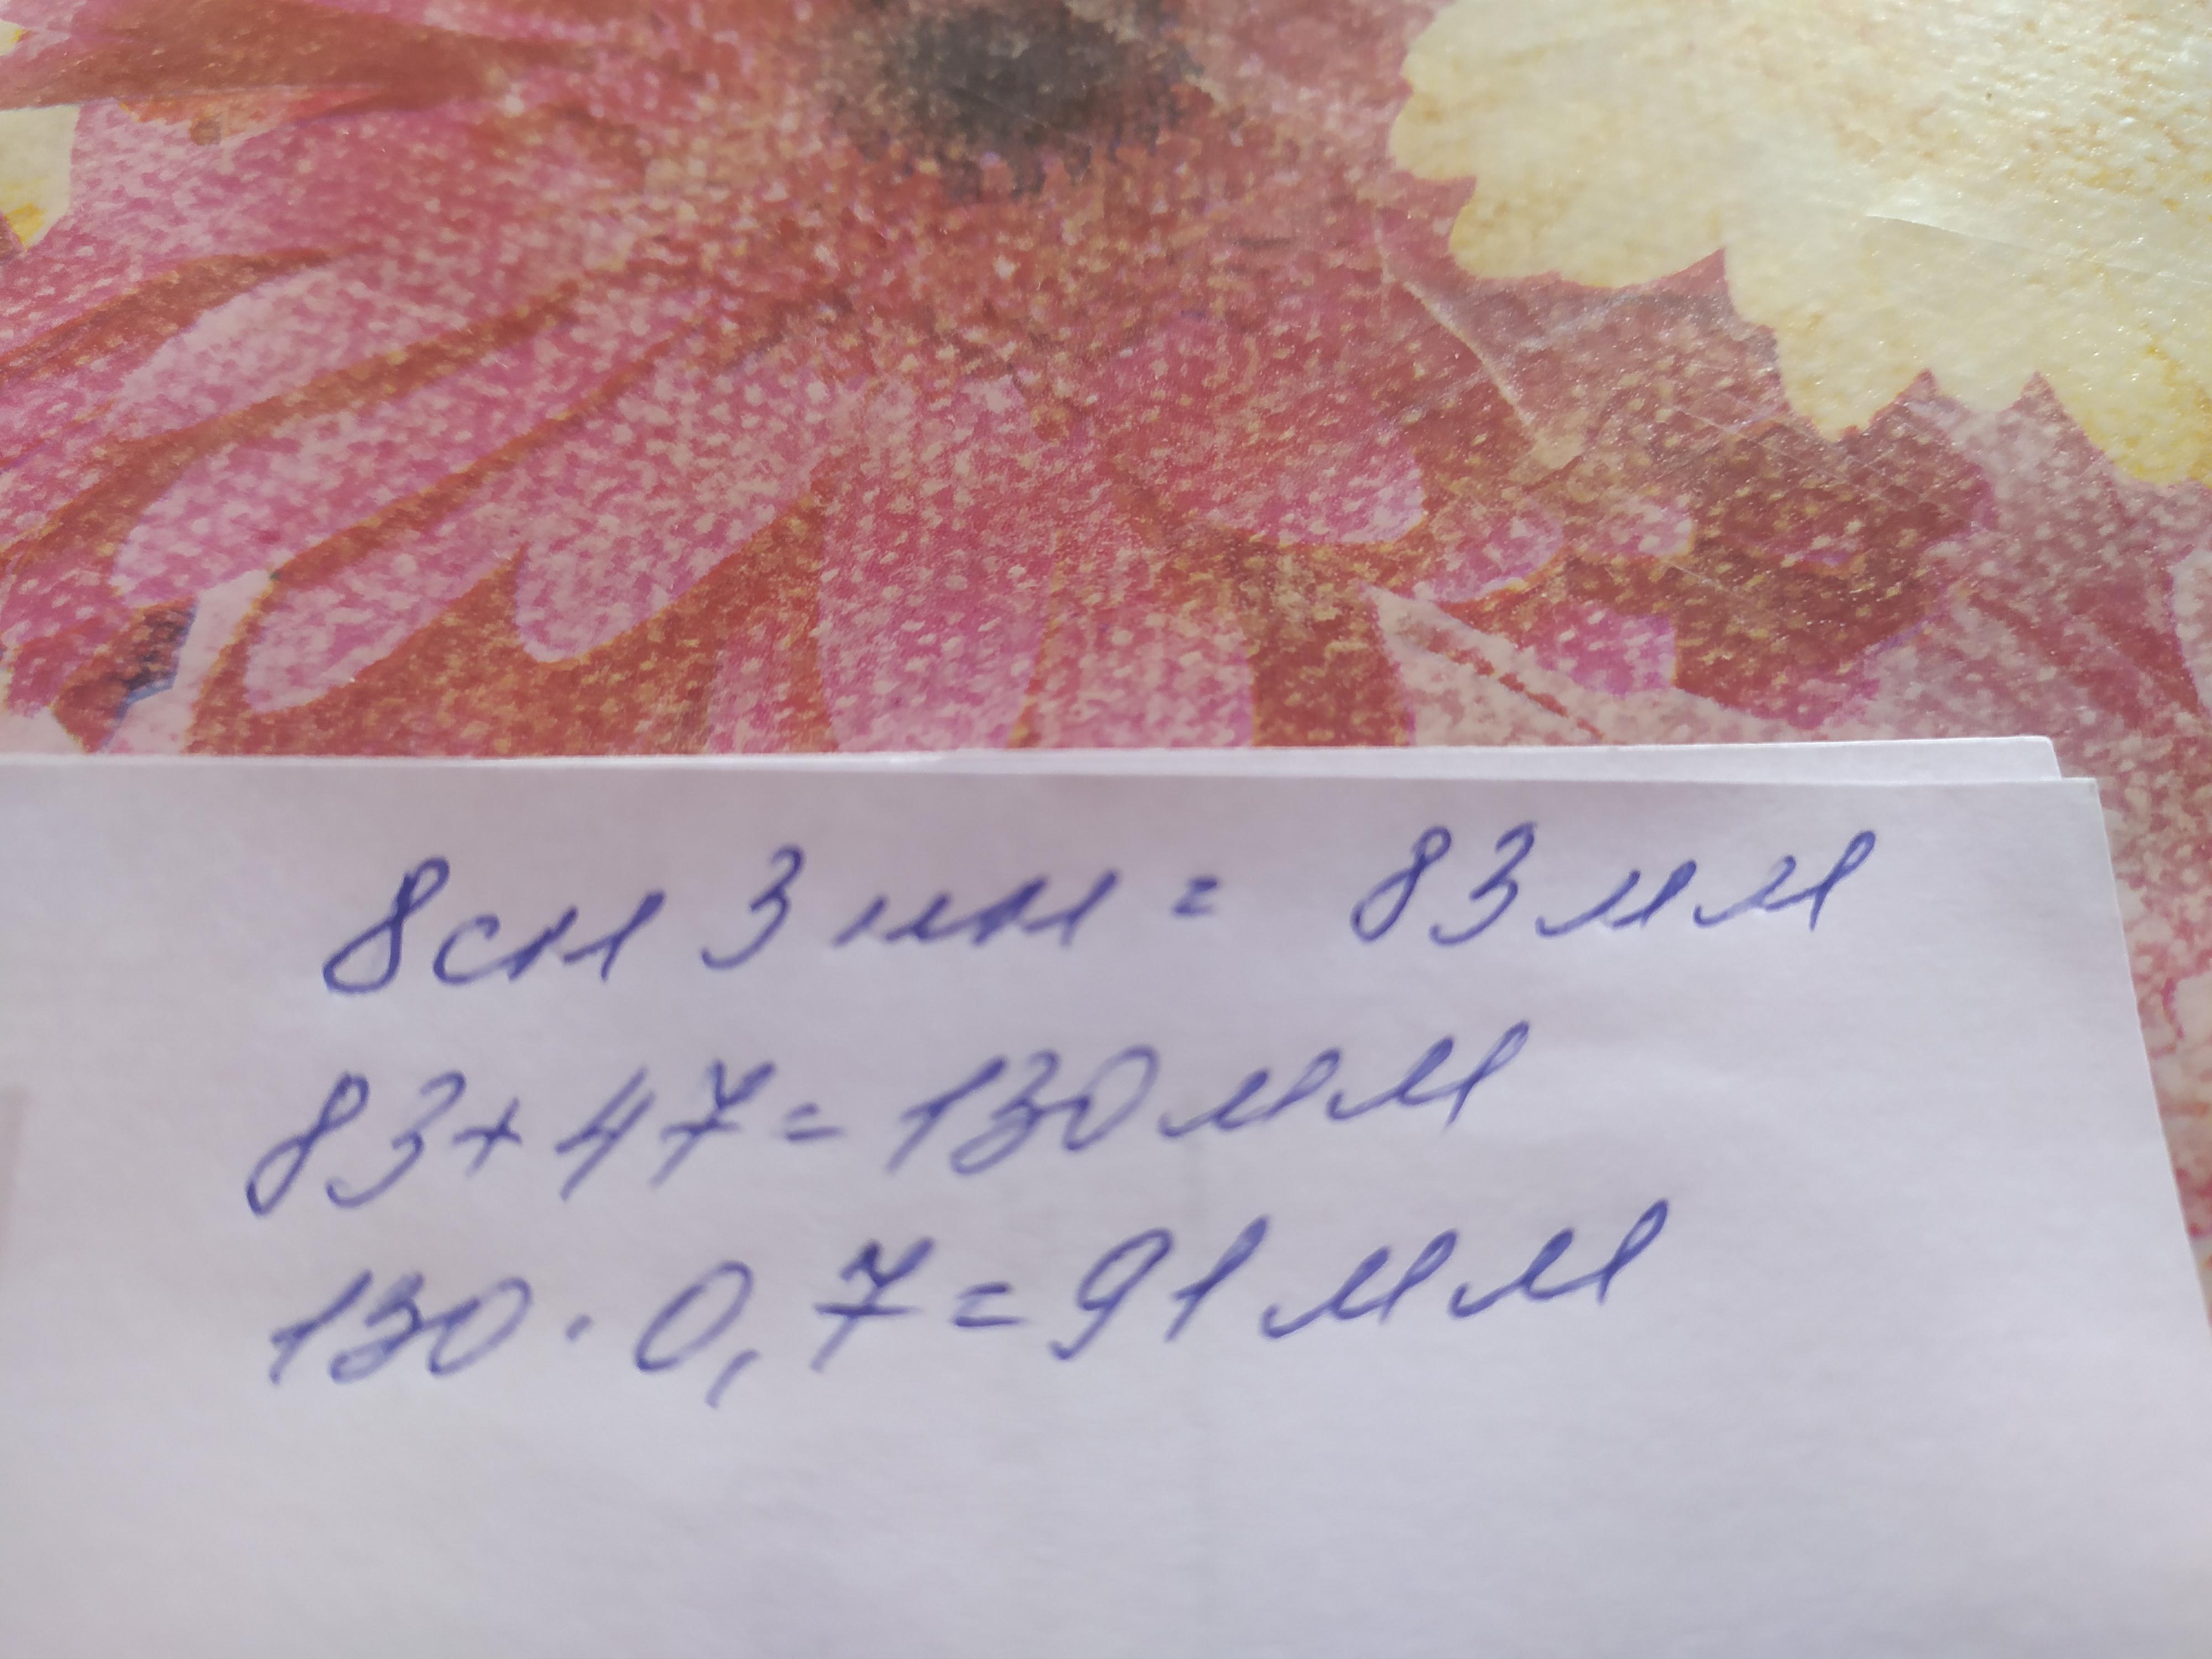 8см 3 мм = 83 мм
83 + 47 = 130 мм
130 · 0,7 = 91 мм